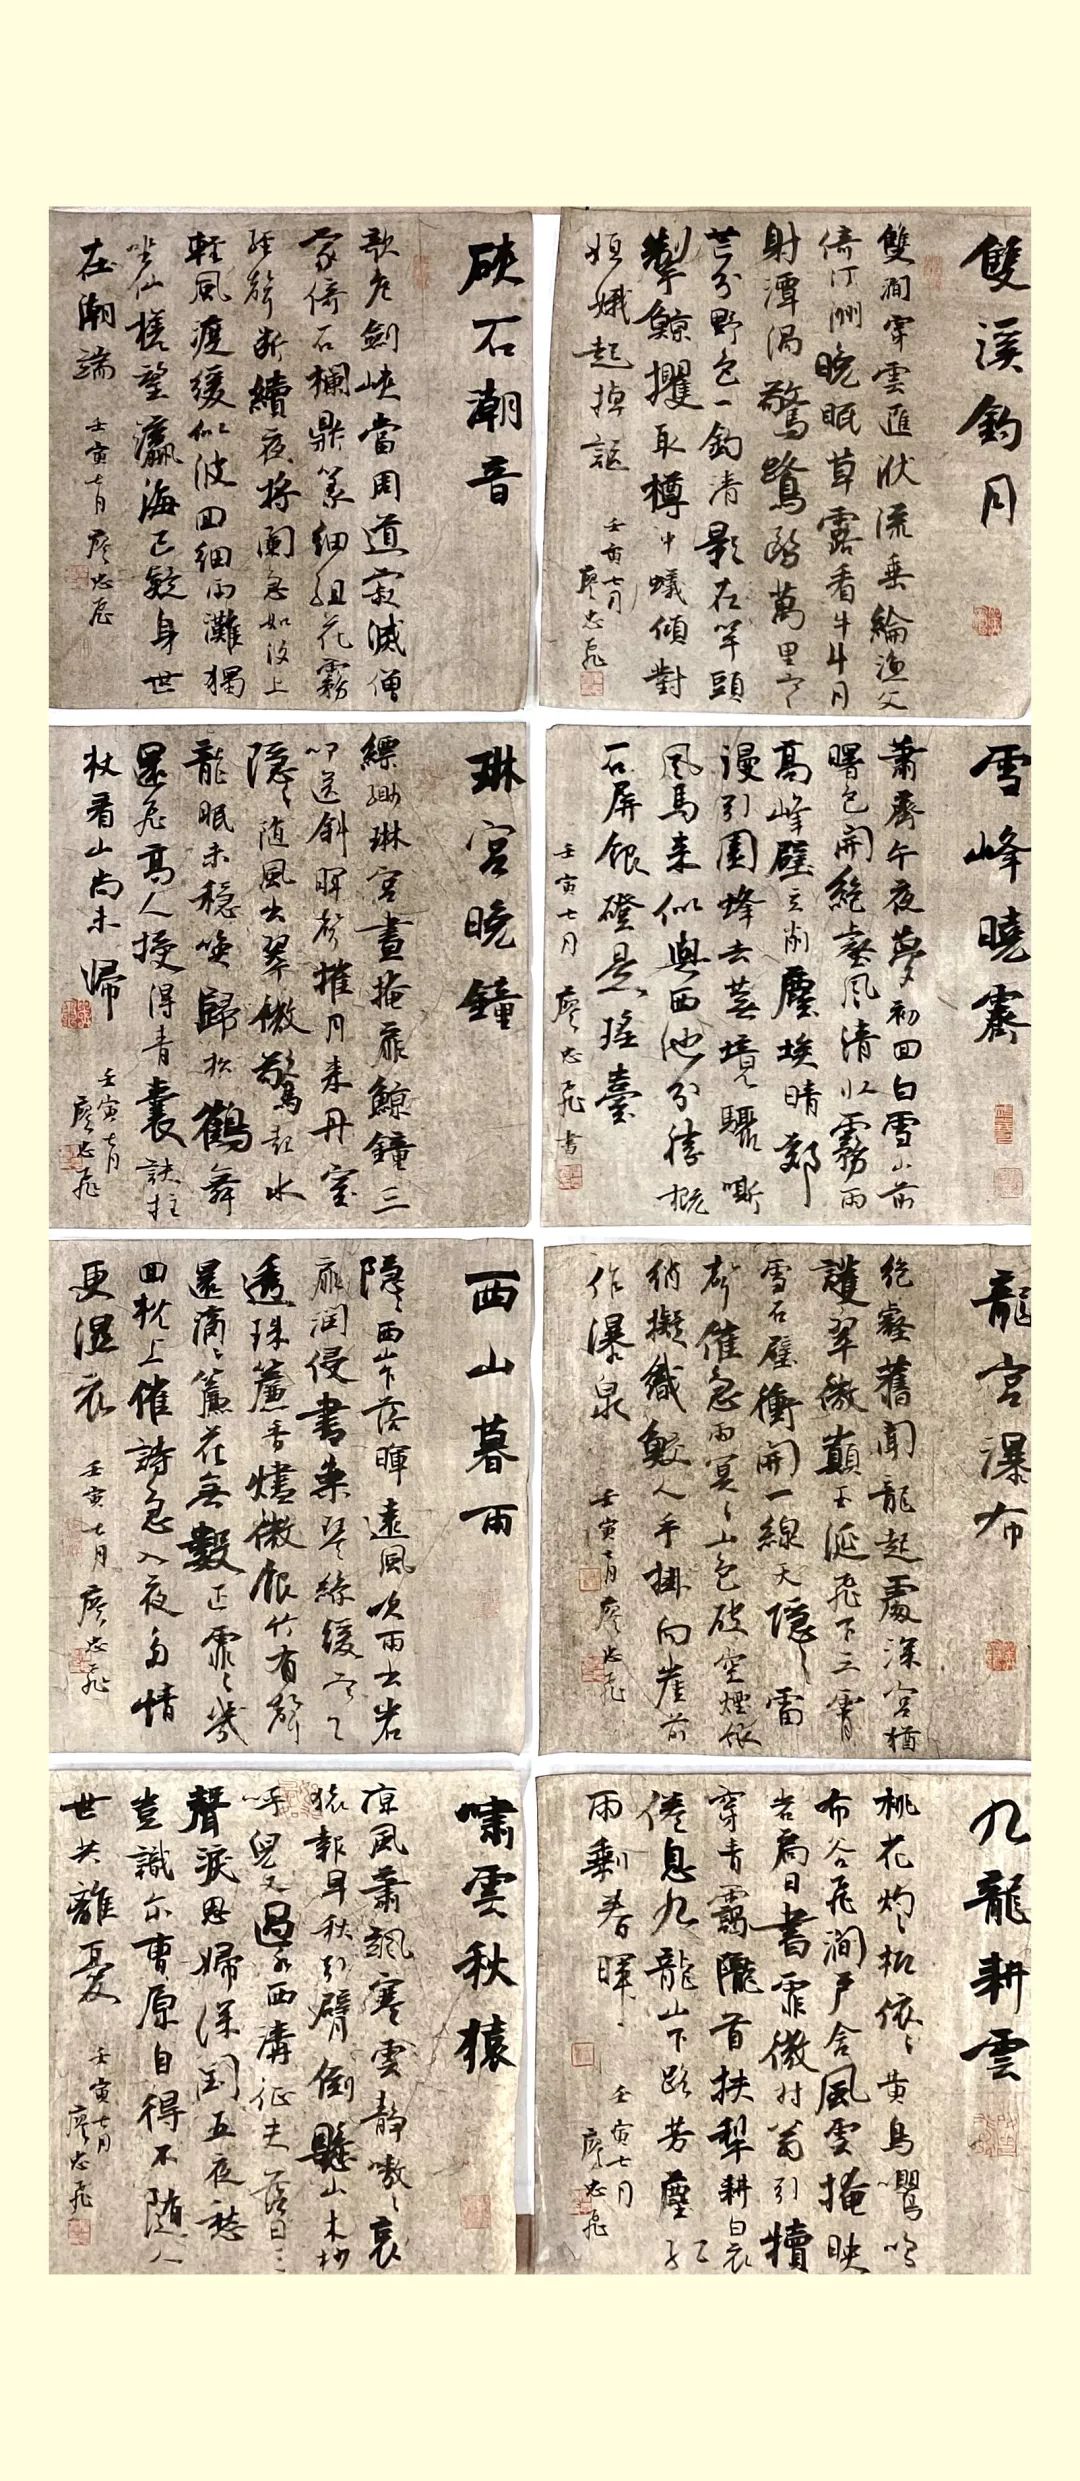 雙溪釣月
雙澗穿雲匯狀流垂綸漁父
倚汀洲晚眠草露看牛斗月
射潭渦驚鷺鷗萬里寒
芒分野色一鈎清影在竿頭
掣鯨攫取樽中蟻傾對
姮娥起掉謳
壬寅七月
廖忠飛
硤石潮音
歌名劍峽當周道寂滅僧
家倚石欄鼎篆細組花霧
經聲斷續夜將闌急如汐上
輕風渡緩似波回細雨灘獨
坐仙槎望瀛海已疑身世
在潮端
壬寅七月
廖忠飛
雪峰曉霽
蕭齋午夜夢初回白雪山前
曙色開絕壑風清收霧雨
高峰壁立削塵埃晴郊
謾引園蜂去暮境遙聽嘶
風馬來似與西池分勝概
石屏銀磴是瑤臺
壬寅七月
廖忠飛書
琳宮晚鐘
縹緲琳宮晝掩扉鯨鐘三
叩送斜暉聲摧月來丹室
隱隱随風出翠微驚起水
龍眠未穩喚歸松鶴舞
還飛高人授得青囊訣拄
杖看山尚未歸
壬寅七月
廖忠飛
龍宮瀑布
絕壑舊聞龍起處深宮猶
護翠微巔玉涎飛下三霄
雪石壁衝開一線天隱隱雷
聲催急雨冥冥山色破空煙依
稍擬織鮫人手掛向崖前
作瀑泉
壬寅七月
廖忠飛
西山暮雨
隱隱西岑落暉遠風吹雨出岩
扉润侵書案琴絲緩寒
透珠簾香燼微銀竹有聲
還滴滴簷花無數正霏霏幾
回枕上催詩急入夜多情
更濕衣
壬寅七月
廖忠飛
九龍耕雲
桃花灼灼柘依依黄鳥嚶鳴
布谷飛澗戶含風雲掩映
岩扃日書霏微村翁引犢
穿青靄隴首扶犁耕白衣
倦息九龍山下路芳塵紅
雨剩春暉
壬寅七月
廖忠飛
嘯雲秋猿
凉風蕭颯寒雲静嗷嗷哀
猿報早秋引臂倒懸山木杪
呼兒又過水西溝征夫落日三
聲淚思婦深閨五夜愁
豈識尔曹原自得不随人
世共離憂
壬寅七月
廖忠飛